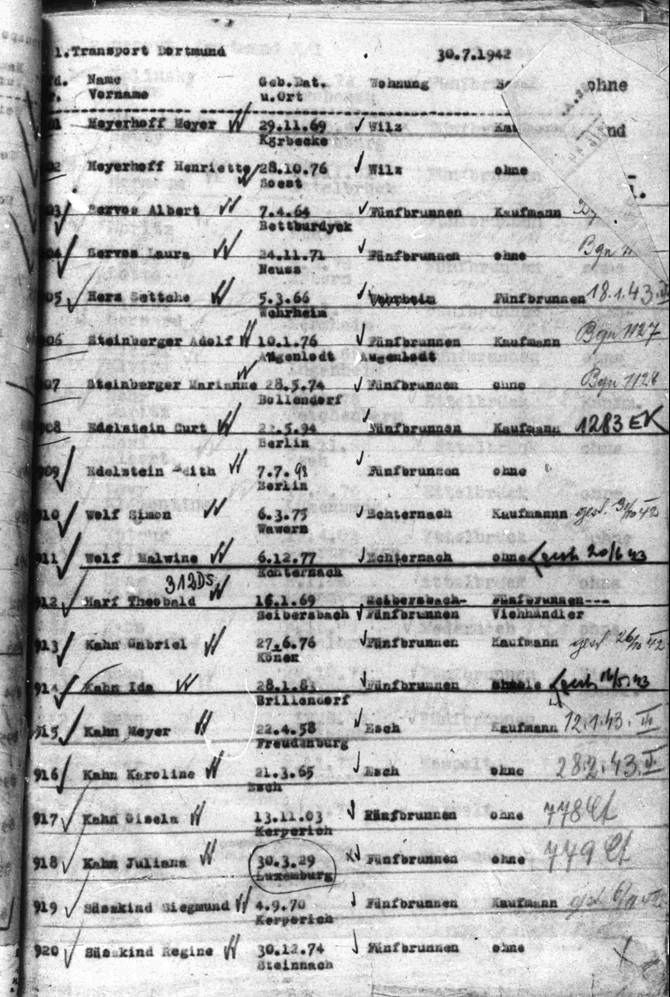 1.Transport Dortmund 30.7.1942
Name Geb.Dat. Wohnung ohne
Vorname u.Ort
Meyerhoff Meyer 29.11.69 Wilz nd
Körbecke
Meyerhoff Henriette 28.10.76 Wilz ohne
Soest
Servos Albert 7.4.64 Fünfbrunnen Kaufmann
Bettburdyck
Servos Laura 24.11.71 Fünfbrunnen ohne Bgn
Neuss
05 Herz Settche 5.3.66 Wehrheim Fünfbrunnen 18.1.43
Wehrheim
906 Steinberger Adolf 10.1.76 Fünfbrunnen Kaufmann Bgn 1127
Augenlodt Augenlodt
907 Steinberger Marianne 28.5.74 Fünfbrunnen ohne Bgn 1128
Bollendorf
908 Edelstein Curt 22.5.94 Fünfbrunnen Kaufmann 1283 EK
Berlin
909 Edelstein Edith 7.7.91 Fünfbrunnen ohne
Berlin
910 Wolf Simon 6.3.75 Echternach Kaufmann gest.
Wawern
911 Wolf Malwine 6.12.77 Echternach ohne 20/6 43
Echternach
312DS
912 Harf Theobald 16.1.69 Seibersbach- Fünfbrunnen---
Seibersbach Fünfbrunnen Viehhändler
913 Kahn Gabriel 27.6.76 Fünfbrunnen Kaufmann gest. 26/10 42
Könen
914 Kahn Ida 28.1.83 Fünfbrunnen 16/5 43
Brillendorf
915 Kahn Meyer 22.4.58 Esch Kaufmann 12.1.43. III
Freudenburg
916 Kahn Karoline 21.3.65 Esch ohne 28.2.43.
Esch
917 Kahn Gisela 13.11.03 Fünfbrunnen ohne 778 Ef
Kerperich
918 Kahn Juliana 30.3.29 Fünfbrunnen ohne 779 Ef
Luxemburg
919 Süsskind Siegmund 4.9.70 Fünfbrunnen Kaufmann gest.
Kerperich
920 Süsskind Regine 30.12.74 Fünfbrunnen ohne
Steinnach